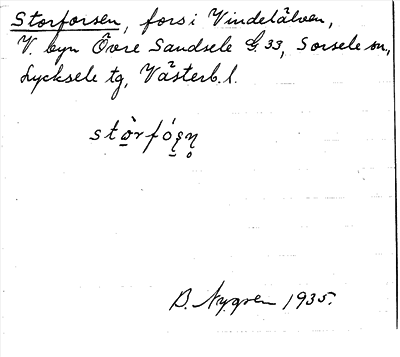 Storforsen, fors i Vindelälven,
V. byn Övre Sandsele G. 33, Sorsele sn,
Lycksele tg, Västerb. l.
stò̲rfó̲ʂn̥
B. Nygren 1935.